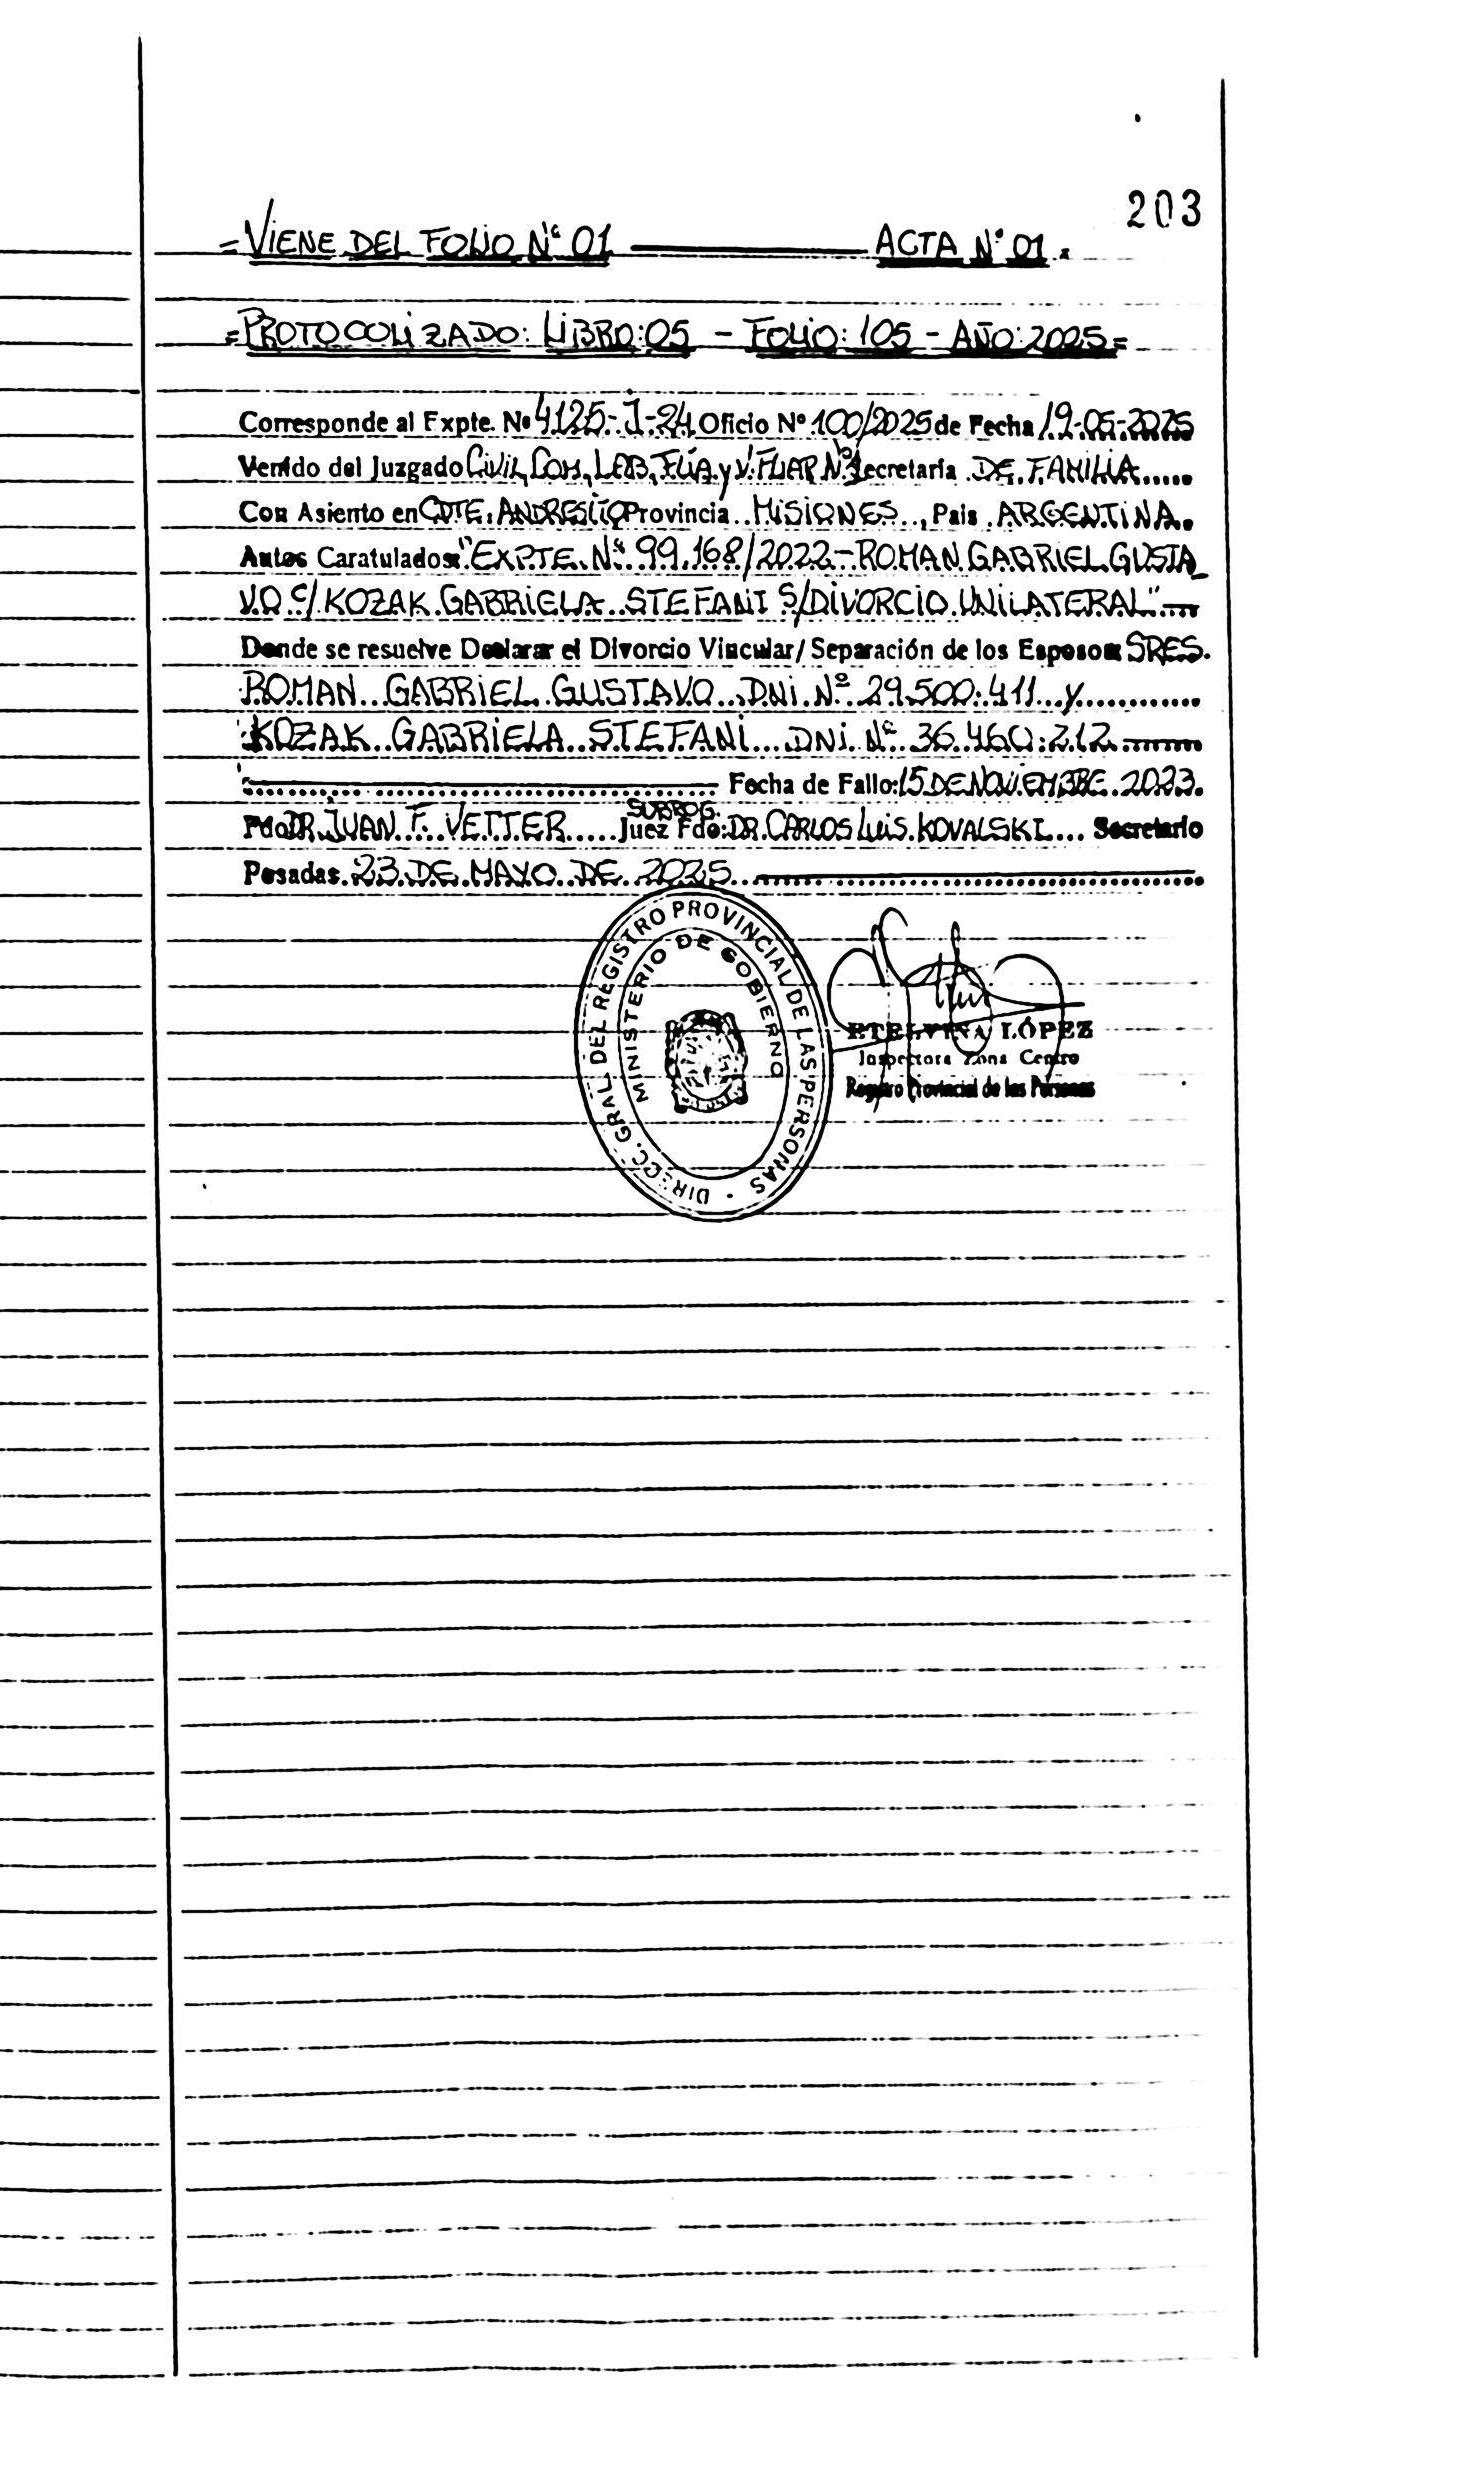 203
=VIENE DEL FOLIO Nº 01 ACTA Nº 01.
=PROTOCOLIZADO: LIBRO: 05 - FOLIO: 105 - AÑO: 2025=
Corresponde al Expte. Nº 4125-J-24 Oficio Nº 100/2025 de Fecha 19-05-2025
Venido del Juzgado CIVIL, COM, LAB, FLIA y V. FLIAR Nº1 Secretaría DE FAMILIA
Con Asiento en CDTE. ANDRESITO Provincia MISIONES, Pais ARGENTINA.
Autos Caratulados: "EXPTE. Nº 99.168/2022-ROMAN GABRIEL GUSTA_
VO C/ KOZAK GABRIELA STEFANI S/DIVORCIO UNILATERAL"
Donde se resuelve Declarar el Divorcio Vincular/ Separación de los Esposos: SRES.
ROMAN GABRIEL GUSTAVO DNI. Nº 29.500.411 y
KOZAK GABRIELA STEFANI DNI. Nº 36.460.212
Fecha de Fallo: 15 DE NOVIEMBRE 2023.
SUBROG.
Fdo: DR. JUAN F. VETTER Juez Fdo: DR. CARLOS LUIS KOVALSKI Secretario
Posadas, 23 DE MAYO DE 2025
DIRECC. GRAL. DEL REGISTRO PROVINCIAL DE LAS PERSONAS
MINISTERIO DE GOBIERNO
ETELVINA LÓPEZ
Inspectora Zona Centro
Registro Provincial de las Personas